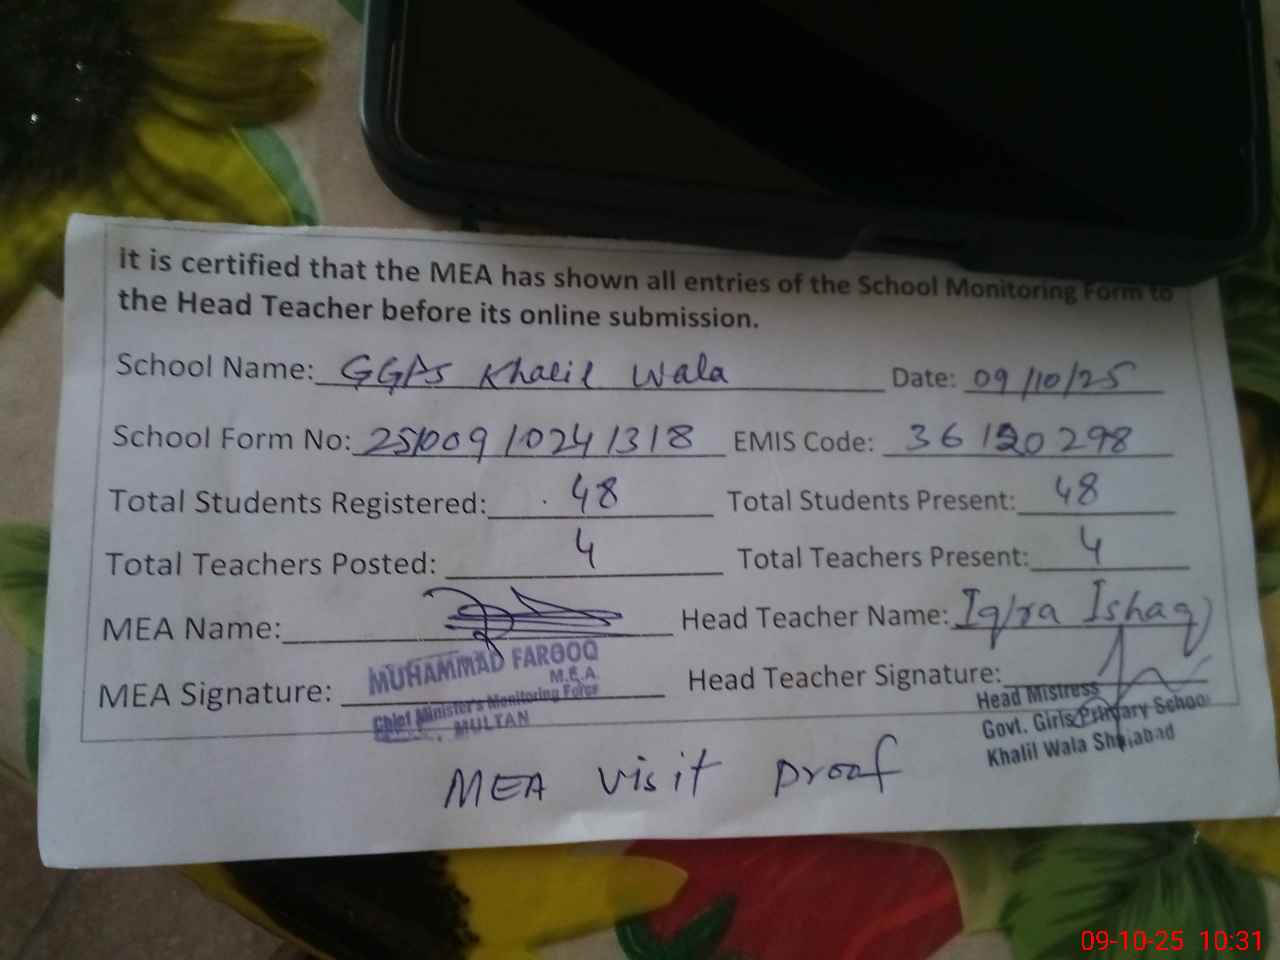 It is certified that the MEA has shown all entries of the School Monitoring Form to
the Head Teacher before its online submission.
School Name: GGPS Khalil Wala Date: 09/10/25
School Form No: 25100910241318 EMIS Code: 36120298
Total Students Registered: 48 Total Students Present: 48
Total Teachers Posted: 4 Total Teachers Present: 4
MEA Name: Head Teacher Name: Iqra Ishaq
MUHAMMAD FAROOQ
M.E.A.
MEA Signature: Head Teacher Signature:
Chief Minister's Monitoring Force
MULTAN
Head Mistress
Govt. Girls Primary School
Khalil Wala Shujabad
MEA visit proof
09-10-25 10:31